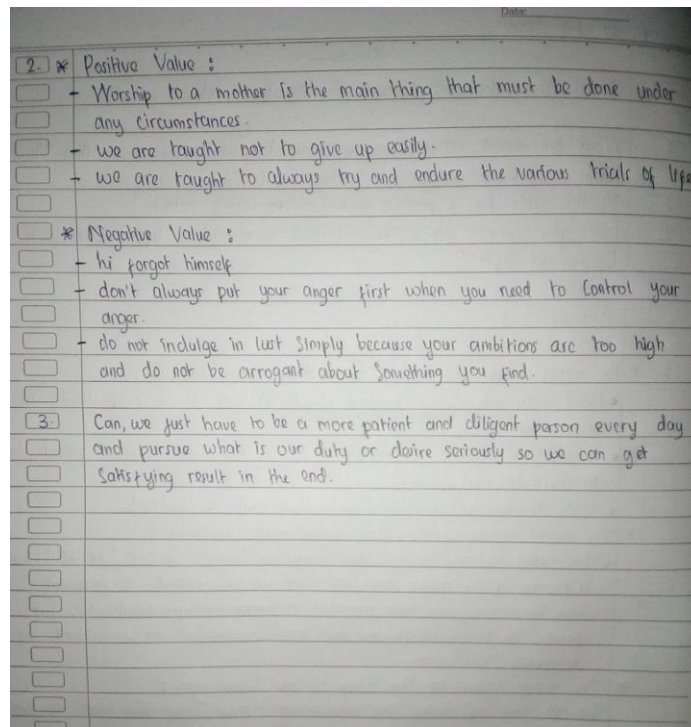 Date:
2. * Positive Value :
- Worship to a mother is the main thing that must be done under
any circumstances.
- we are taught not to give up easily.
- we are taught to always try and endure the various trials of life
* Negative Value :
- hi forgot himself
- don't always put your anger first when you need to control your
anger.
- do not indulge in lust simply because your ambitions are too high
and do not be arrogant about something you find.
3. Can, we just have to be a more patient and diligent person every day
and pursue what is our duty or desire seriously so we can get
satisfying result in the end.